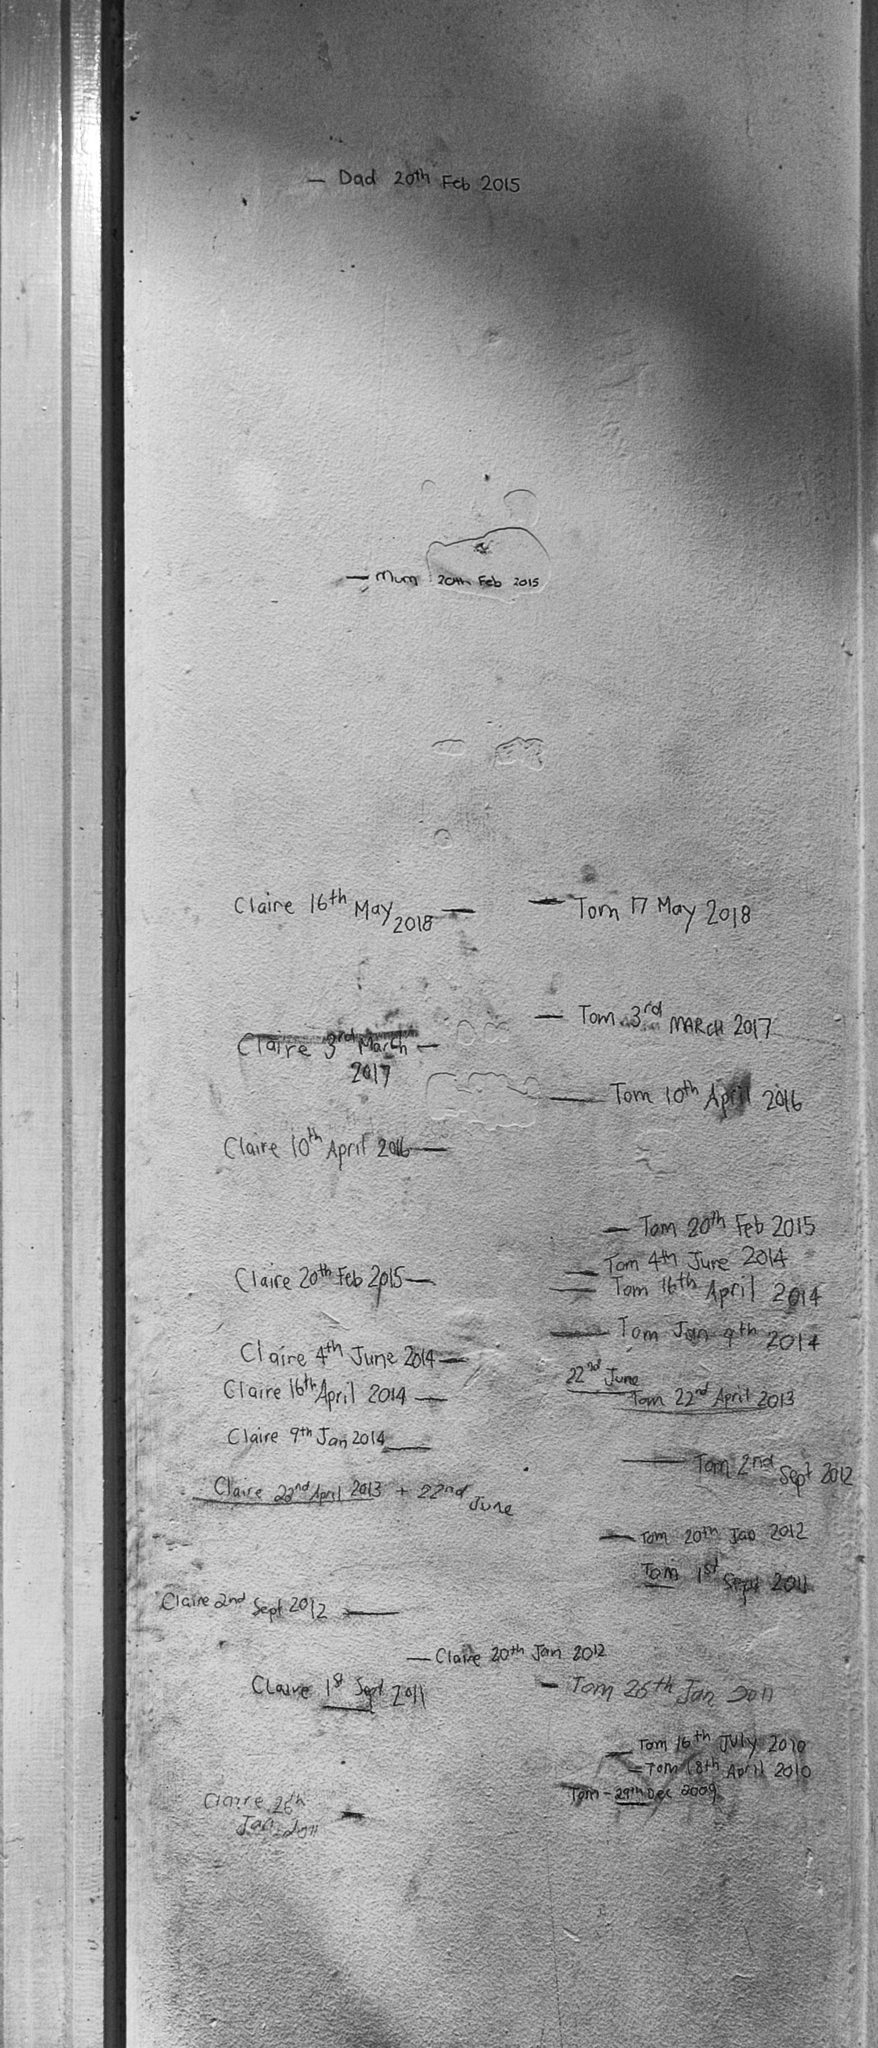 Dad 20th Feb 2015
Mum 20th Feb 2015
Claire 16th May 2018
Tom 17 May 2018
Tom 3rd MARCH 2017
Claire 3rd March
2017
Tom 10th April 2016
Claire 10th April 2016
Tom 20th Feb 2015
Tom 4th June 2014
Claire 20th Feb 2015
Tom 16th April 2014
Tom Jan 9th 2014
Claire 4th June 2014
22nd June
Claire 16th April 2014
Tom 22nd April 2013
Claire 9th Jan 2014
Tom 2nd Sept 2012
Claire 22nd April 2013 + 22nd June
Tom 20th Jan 2012
Tom 1st Sept 2011
Claire 2nd Sept 2012
Claire 20th Jan 2012
Claire 1st Sept 2011
Tom 26th Jan 2011
Tom 16th July 2010
Tom 18th April 2010
Tom - 29th Dec 2009
Claire 26th
Jan 2011